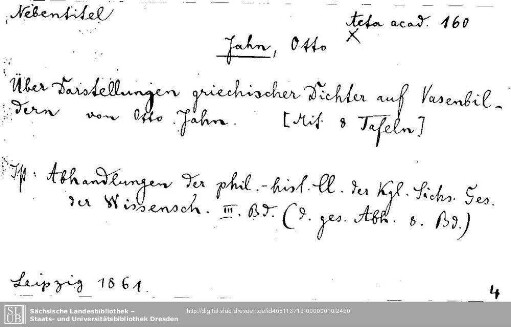 Nebentitel
Acta acad. 160
X
Jahn, Otto
Über Darstellungen griechischer Dichter auf Vasenbil-
dern von Otto Jahn. [Mit 8 Tafeln]
Ist: Abhandlungen der phil.-hist. Cl. der Kgl. Sächs. Ges.
der Wissensch. III. Bd. (d. ges. Abh. 8. Bd.)
Leipzig 1861.
4
Sächsische Landesbibliothek –
Staats- und Universitätsbibliothek Dresden